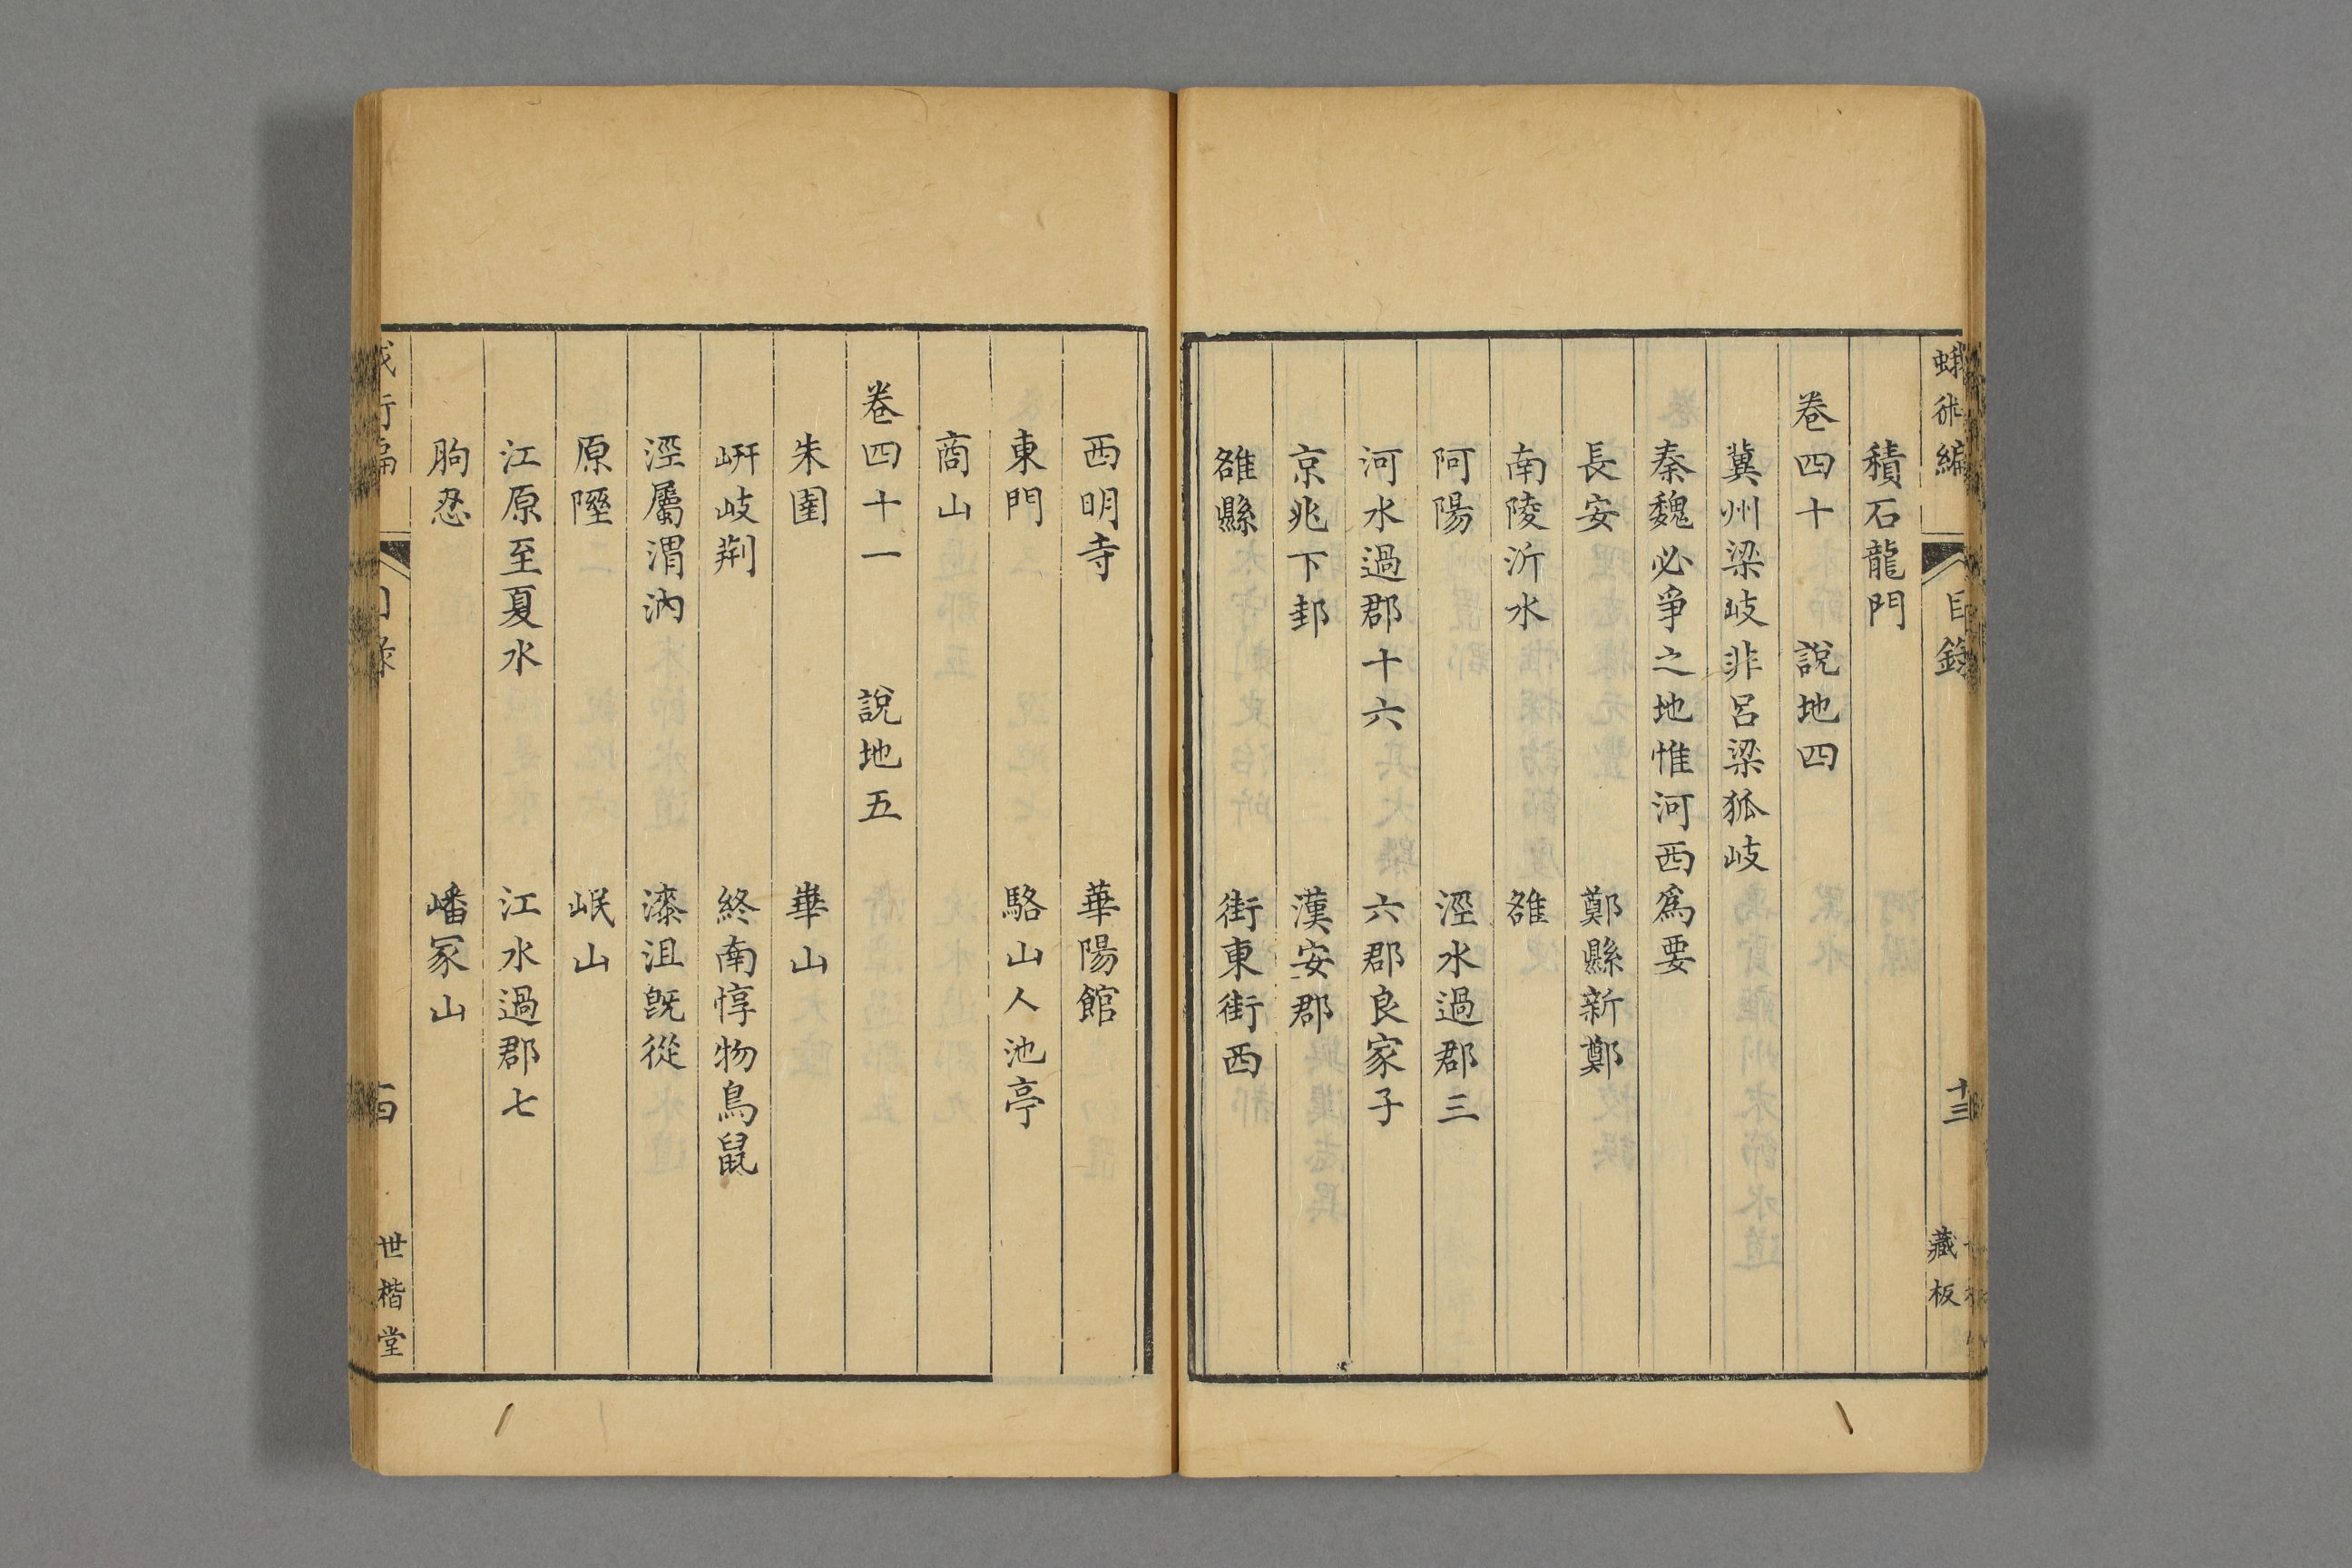 蛾術編
目錄
十三
藏板
積石龍門
卷四十　說地四
冀州梁岐非呂梁狐岐
秦魏必爭之地惟河西爲要
長安　鄭縣新鄭
南陵沂水　雒
阿陽　涇水過郡三
河水過郡十六　六郡良家子
京兆下邽　漢安郡
雒縣　街東街西
西明寺　華陽館
東門　駱山人池亭
商山
卷四十一　說地五
朱圉　崋山
岍岐荆　終南惇物鳥鼠
涇屬渭汭　漆沮旣從
原隰　岷山
江原至夏水　江水過郡七
朐忍　嶓冢山
世楷堂